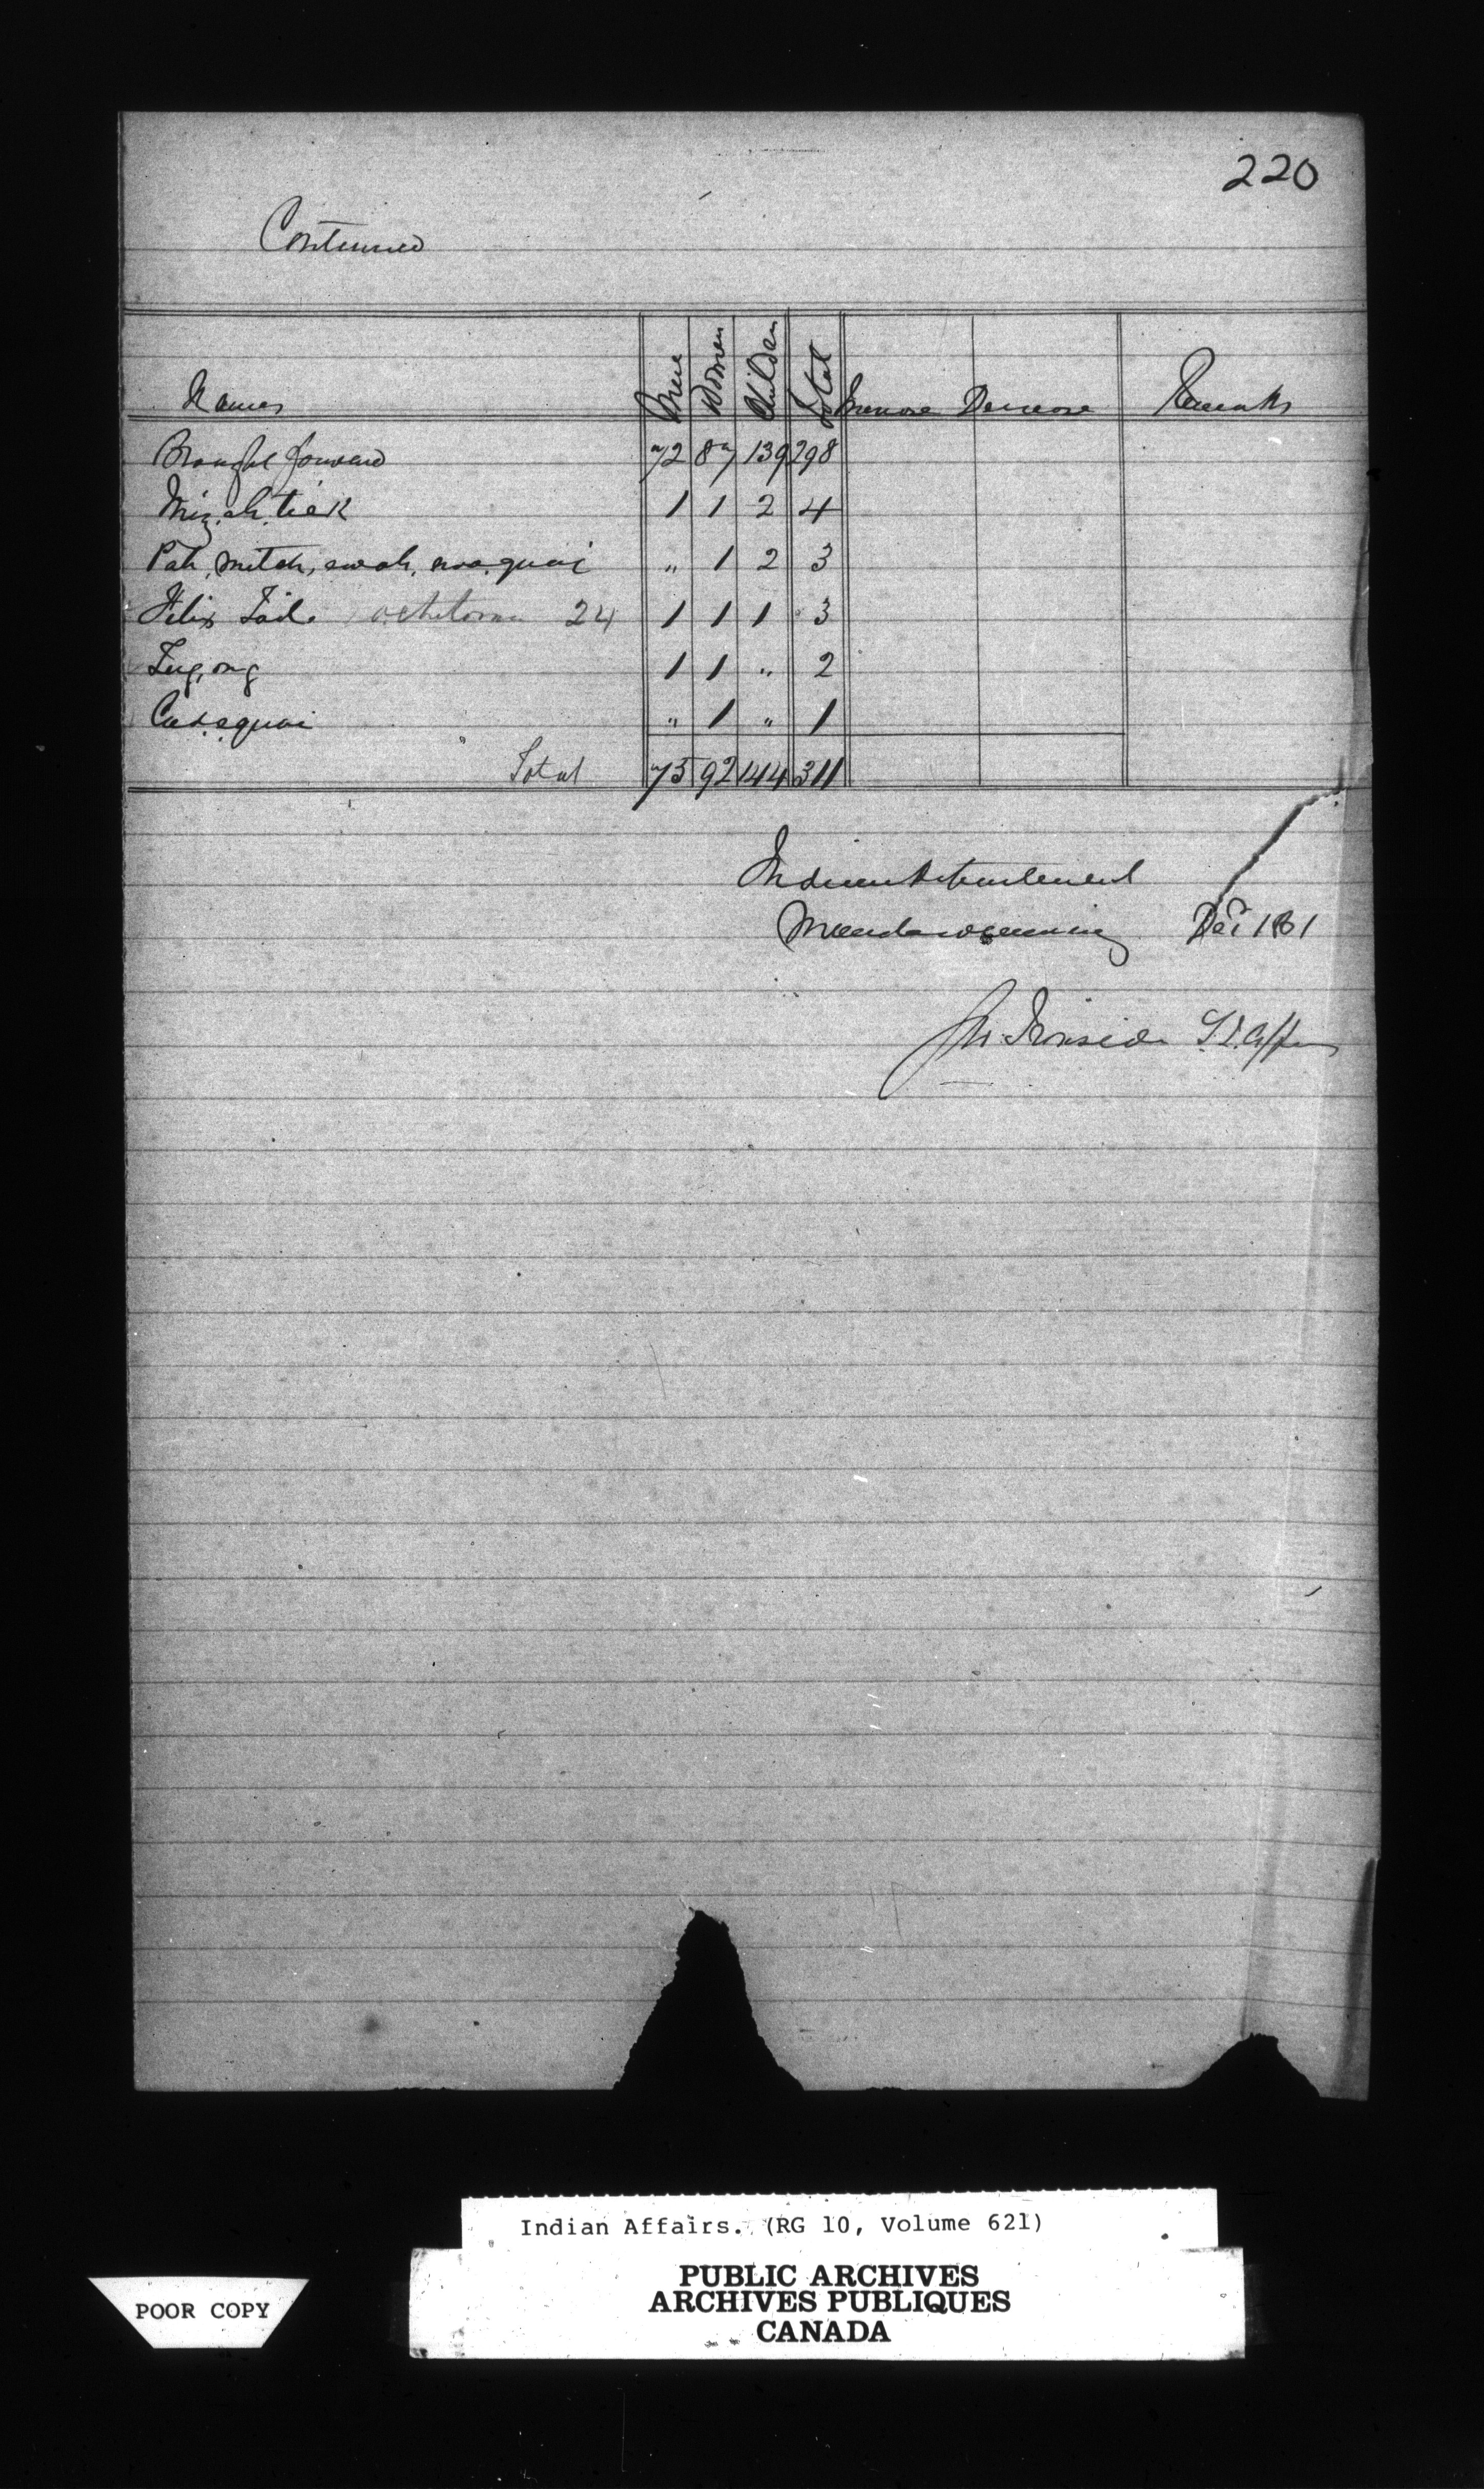 220
Continued
Names Men Women Children Total Increase Decrease Remarks
Brought forward 72 87 139 298
Miz.ah.tick 1 1 2 4
Pah, mitah, awah, noo.quai " 1 2 3
Felix 24 1 1 1 3
1 1 " 2
" 1 " 1
Total 75 92 144 311
Indian Department
Manatowaning Dec 1861
Ironside S.I.Affrs
Indian Affairs. (RG 10, Volume 621)
PUBLIC ARCHIVES
ARCHIVES PUBLIQUES
CANADA
POOR COPY